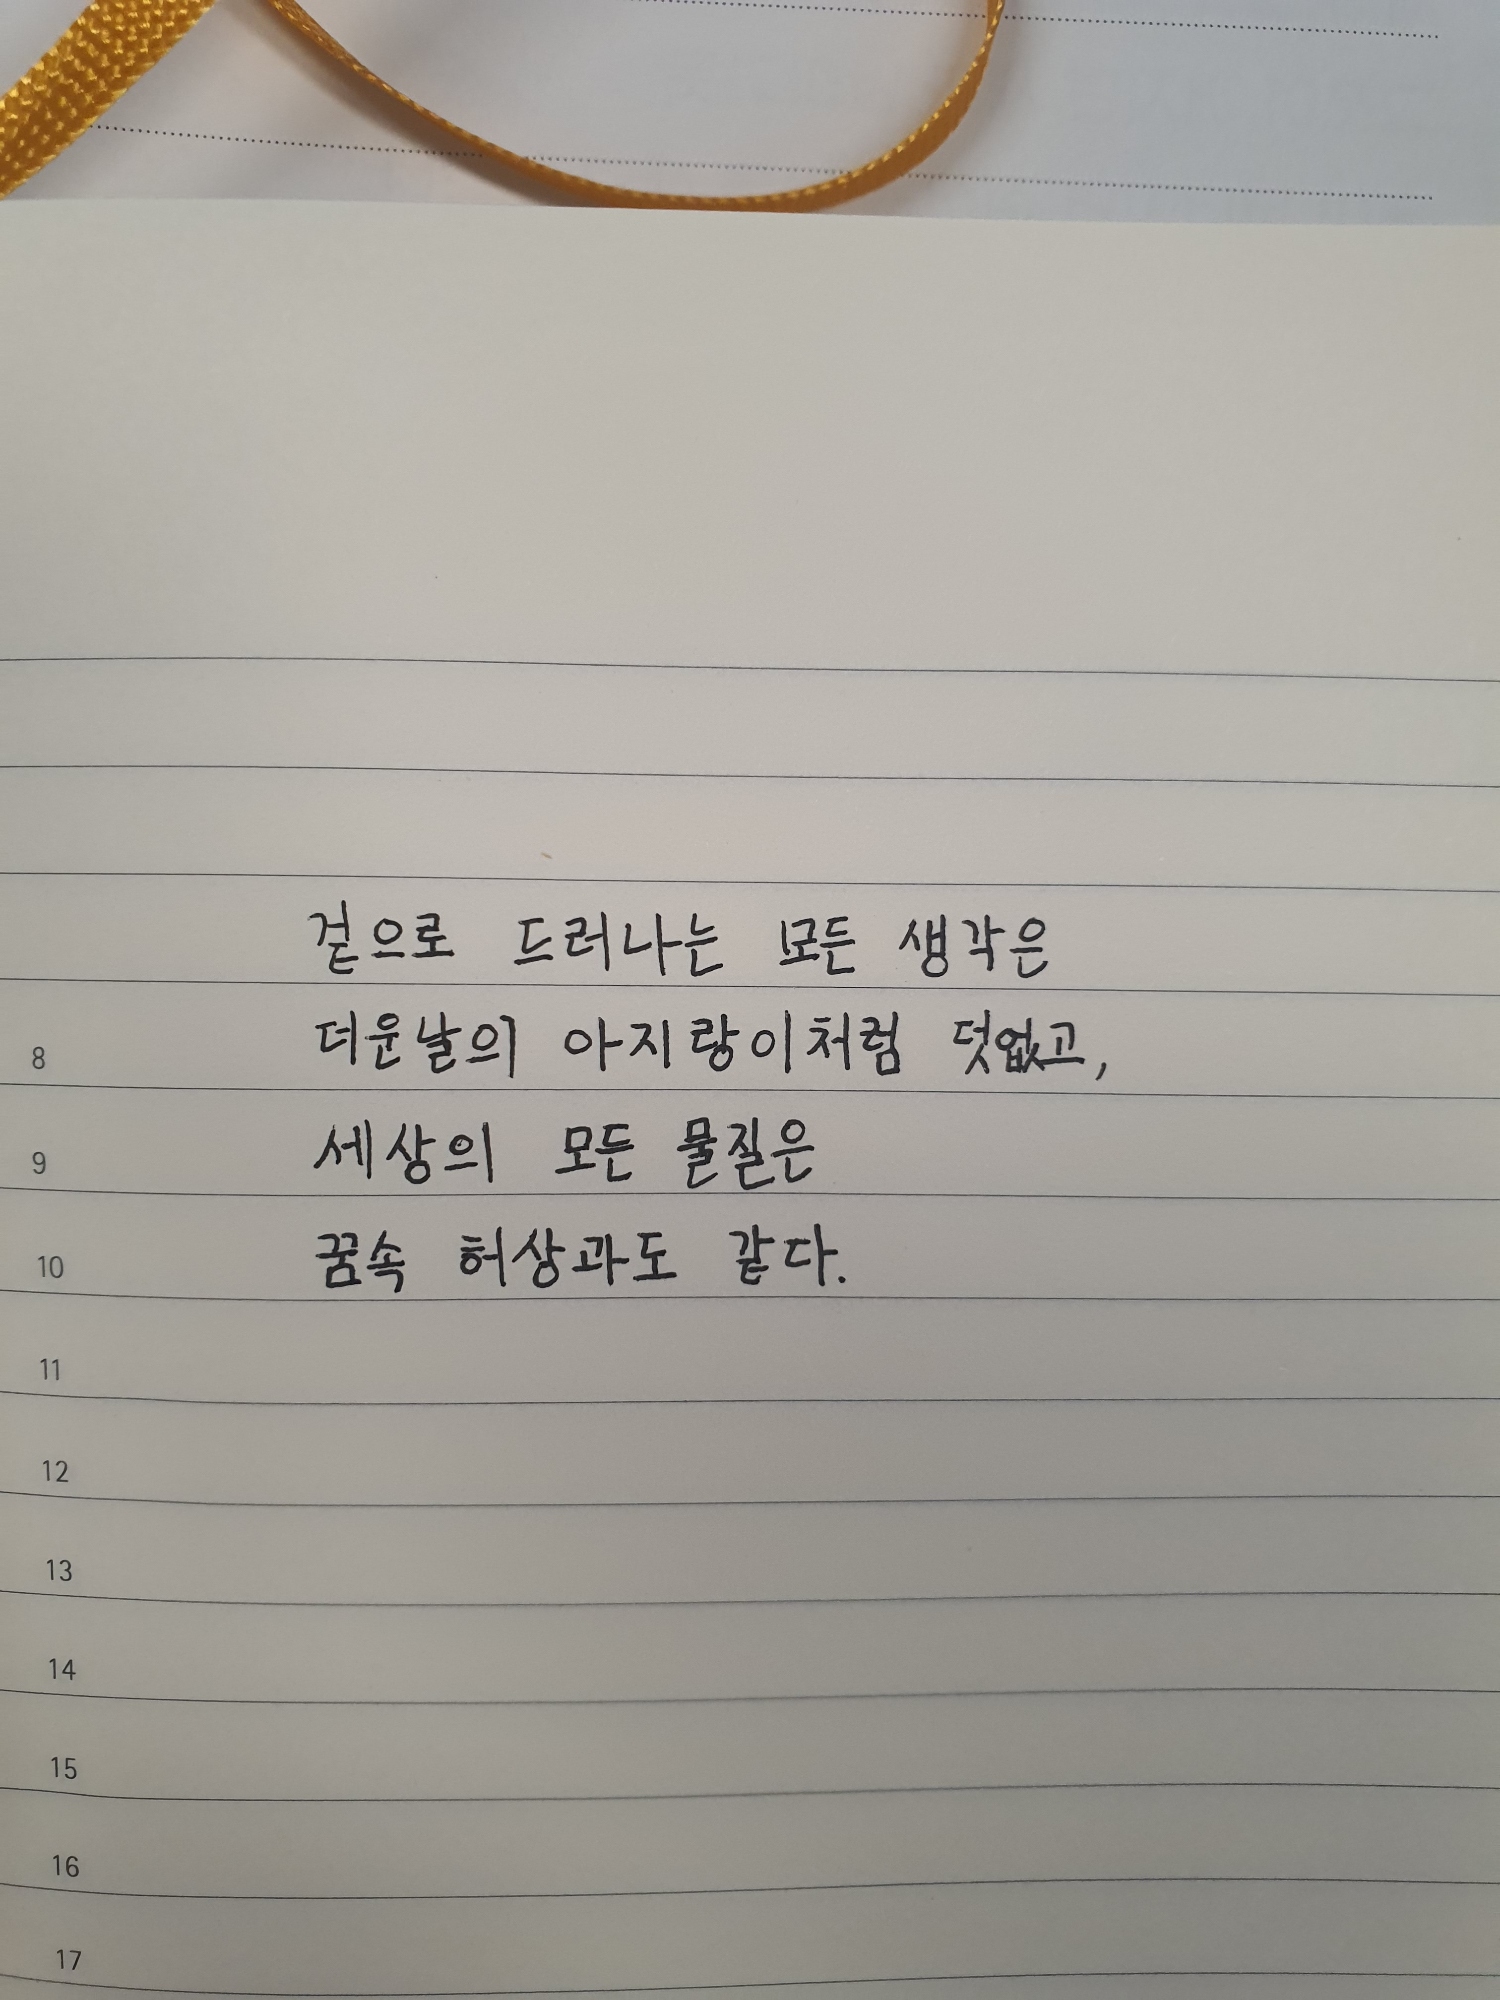 겉으로 드러나는 모든 생각은
8 더운날의 아지랑이처럼 덧없고,
9 세상의 모든 물질은
10 꿈속 허상과도 같다.
11
12
13
14
15
16
17